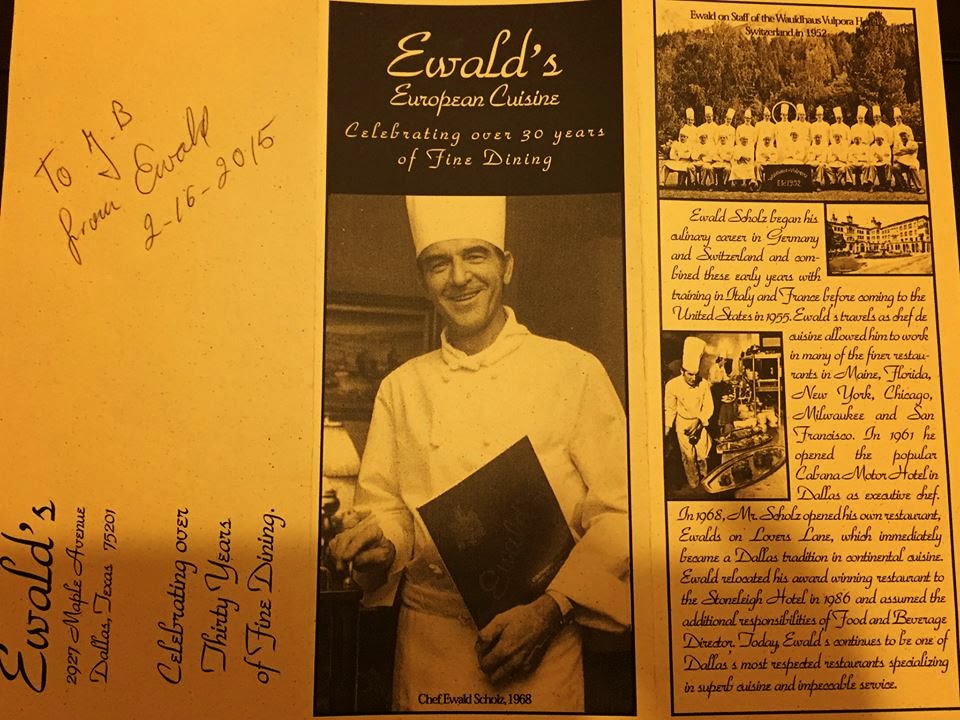 To J.B
from Ewald
2-16-2015
Ewald's
2927 Maple Avenue
Dallas, Texas 75201
Celebrating over
Thirty Years
of Fine Dining.
Ewald's
European Cuisine
Celebrating over 30 years
of Fine Dining
Chef Ewald Scholz, 1968
Ewald on Staff of the Wauldhaus Vulpora
Switzerland in 1952
Ewald Scholz began his
culinary career in Germany
and Switzerland and com-
bined these early years with
training in Italy and France before coming to the
United States in 1955. Ewald's travels as chef de
cuisine allowed him to work
in many of the finer restau-
rants in Maine, Florida,
New York, Chicago,
Milwaukee and San
Francisco. In 1961 he
opened the popular
Cabana Motor Hotel in
Dallas as executive chef.
In 1968, Mr. Scholz opened his own restaurant,
Ewalds on Lovers Lane, which immediately
became a Dallas tradition in continental cuisine.
Ewald relocated his award winning restaurant to
the Stoneleigh Hotel in 1986 and assumed the
additional responsibilities of Food and Beverage
Director. Today, Ewald's continues to be one of
Dallas's most respected restaurants specializing
in superb cuisine and impeccable service.